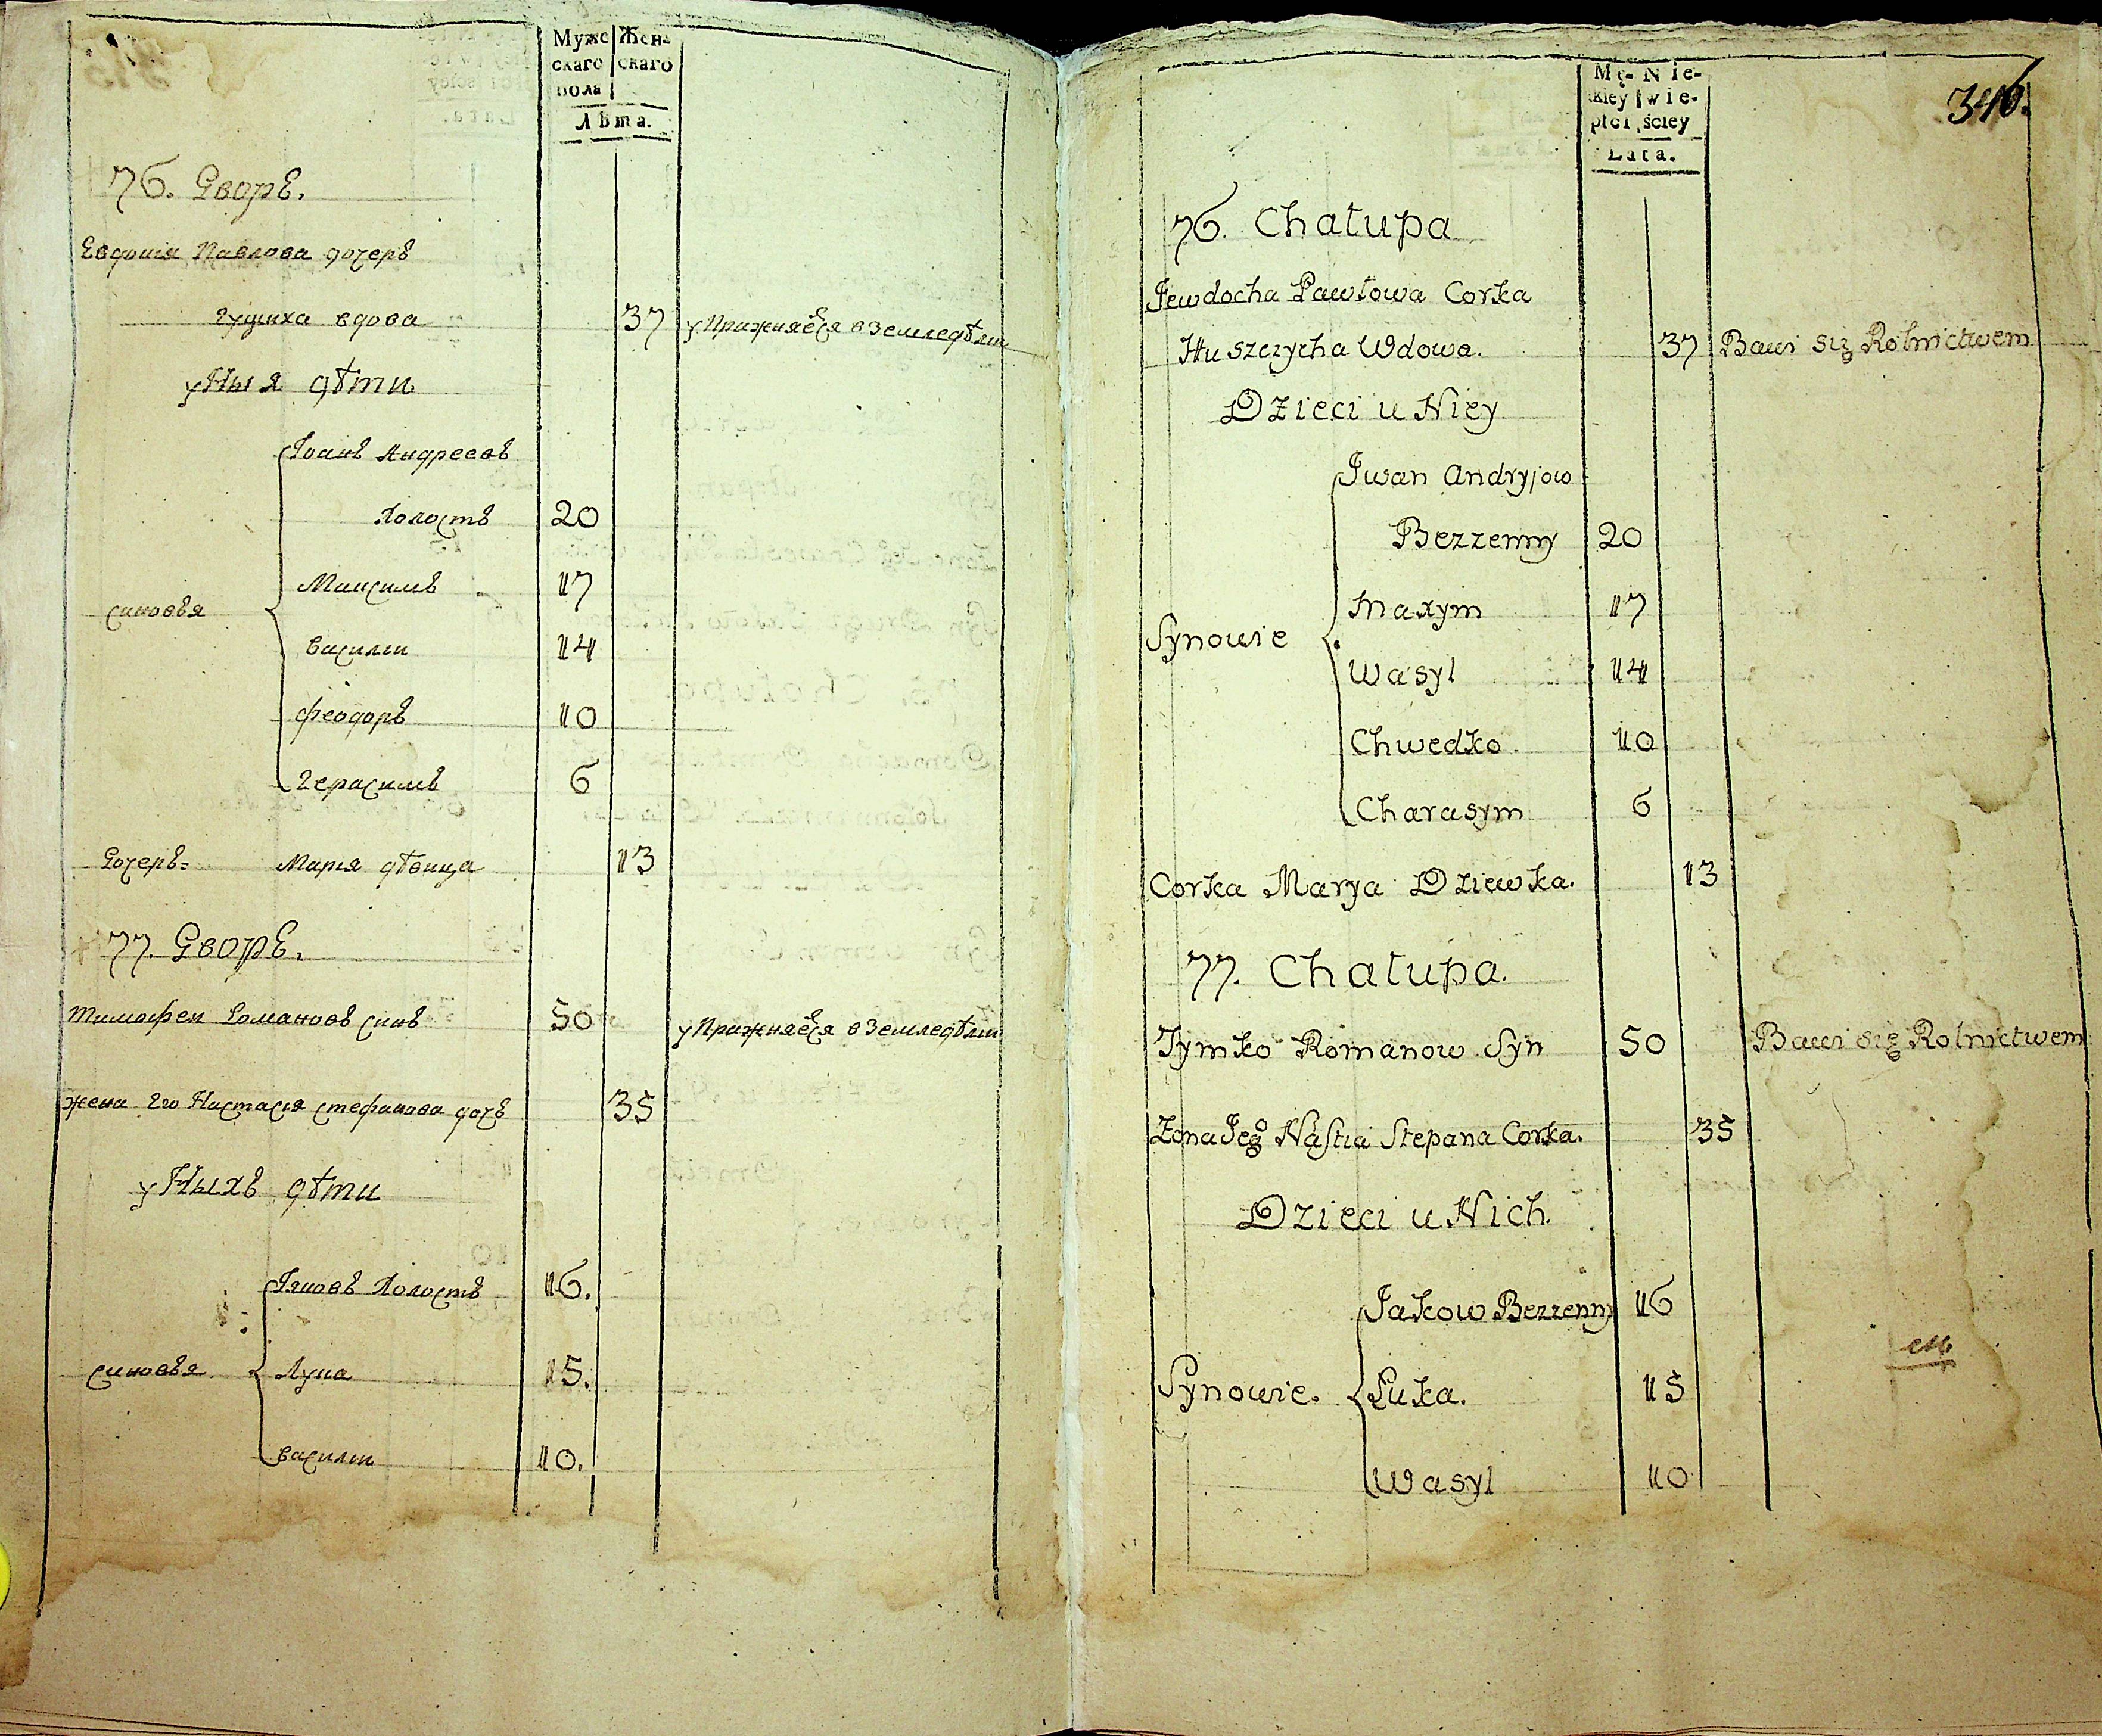 Муже Жен-
скаго скаго
пола
Лѣта.
76. Дворъ.
Евдокия Павлова дочеръ
гущиха вдова 37 упражняется вземледѣлии
уНыя дѣти
Іванъ Андреевъ
Холостъ 20
Максимъ 17
синовья
василии 14
феодоръ 10
герасимъ 6
Дочеръ= Мария дѣвица 13
77. Дворъ.
тимофеи Романовъ синъ 50 упражняется вземледѣлии
жена Его Настасия стефанова дочъ 35
уНыхъ дѣти
Іяковъ Холостъ 16.
синовья Лука 15.
василии 10.
346.
Mę- Nie-
skiey wie-
płci ściey
Lata.
76. Chałupa
Jewdocha Pawłowa Corka
Huszczycha Wdowa. 37 Bawi się Rolnictwem
Dzieci u Niey
Iwan Andryjow
Bezzenny 20
Maxym 17
Synowie
Wasyl 14
Chwedko 10
Charasym 6
Corka Marya Dziewka. 13
77. Chałupa.
Tymko Romanow Syn 50 Bawi się Rolnictwem
Zona Jego Nastia Stepana Corka. 35
Dzieci u Nich.
Jakow Bezzenny 16
Synowie. Łuka. 15
Wasyl 10